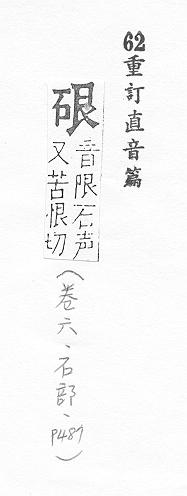 62重訂直音篇
硍音限石声
又苦恨切
（卷六、石部、P487）